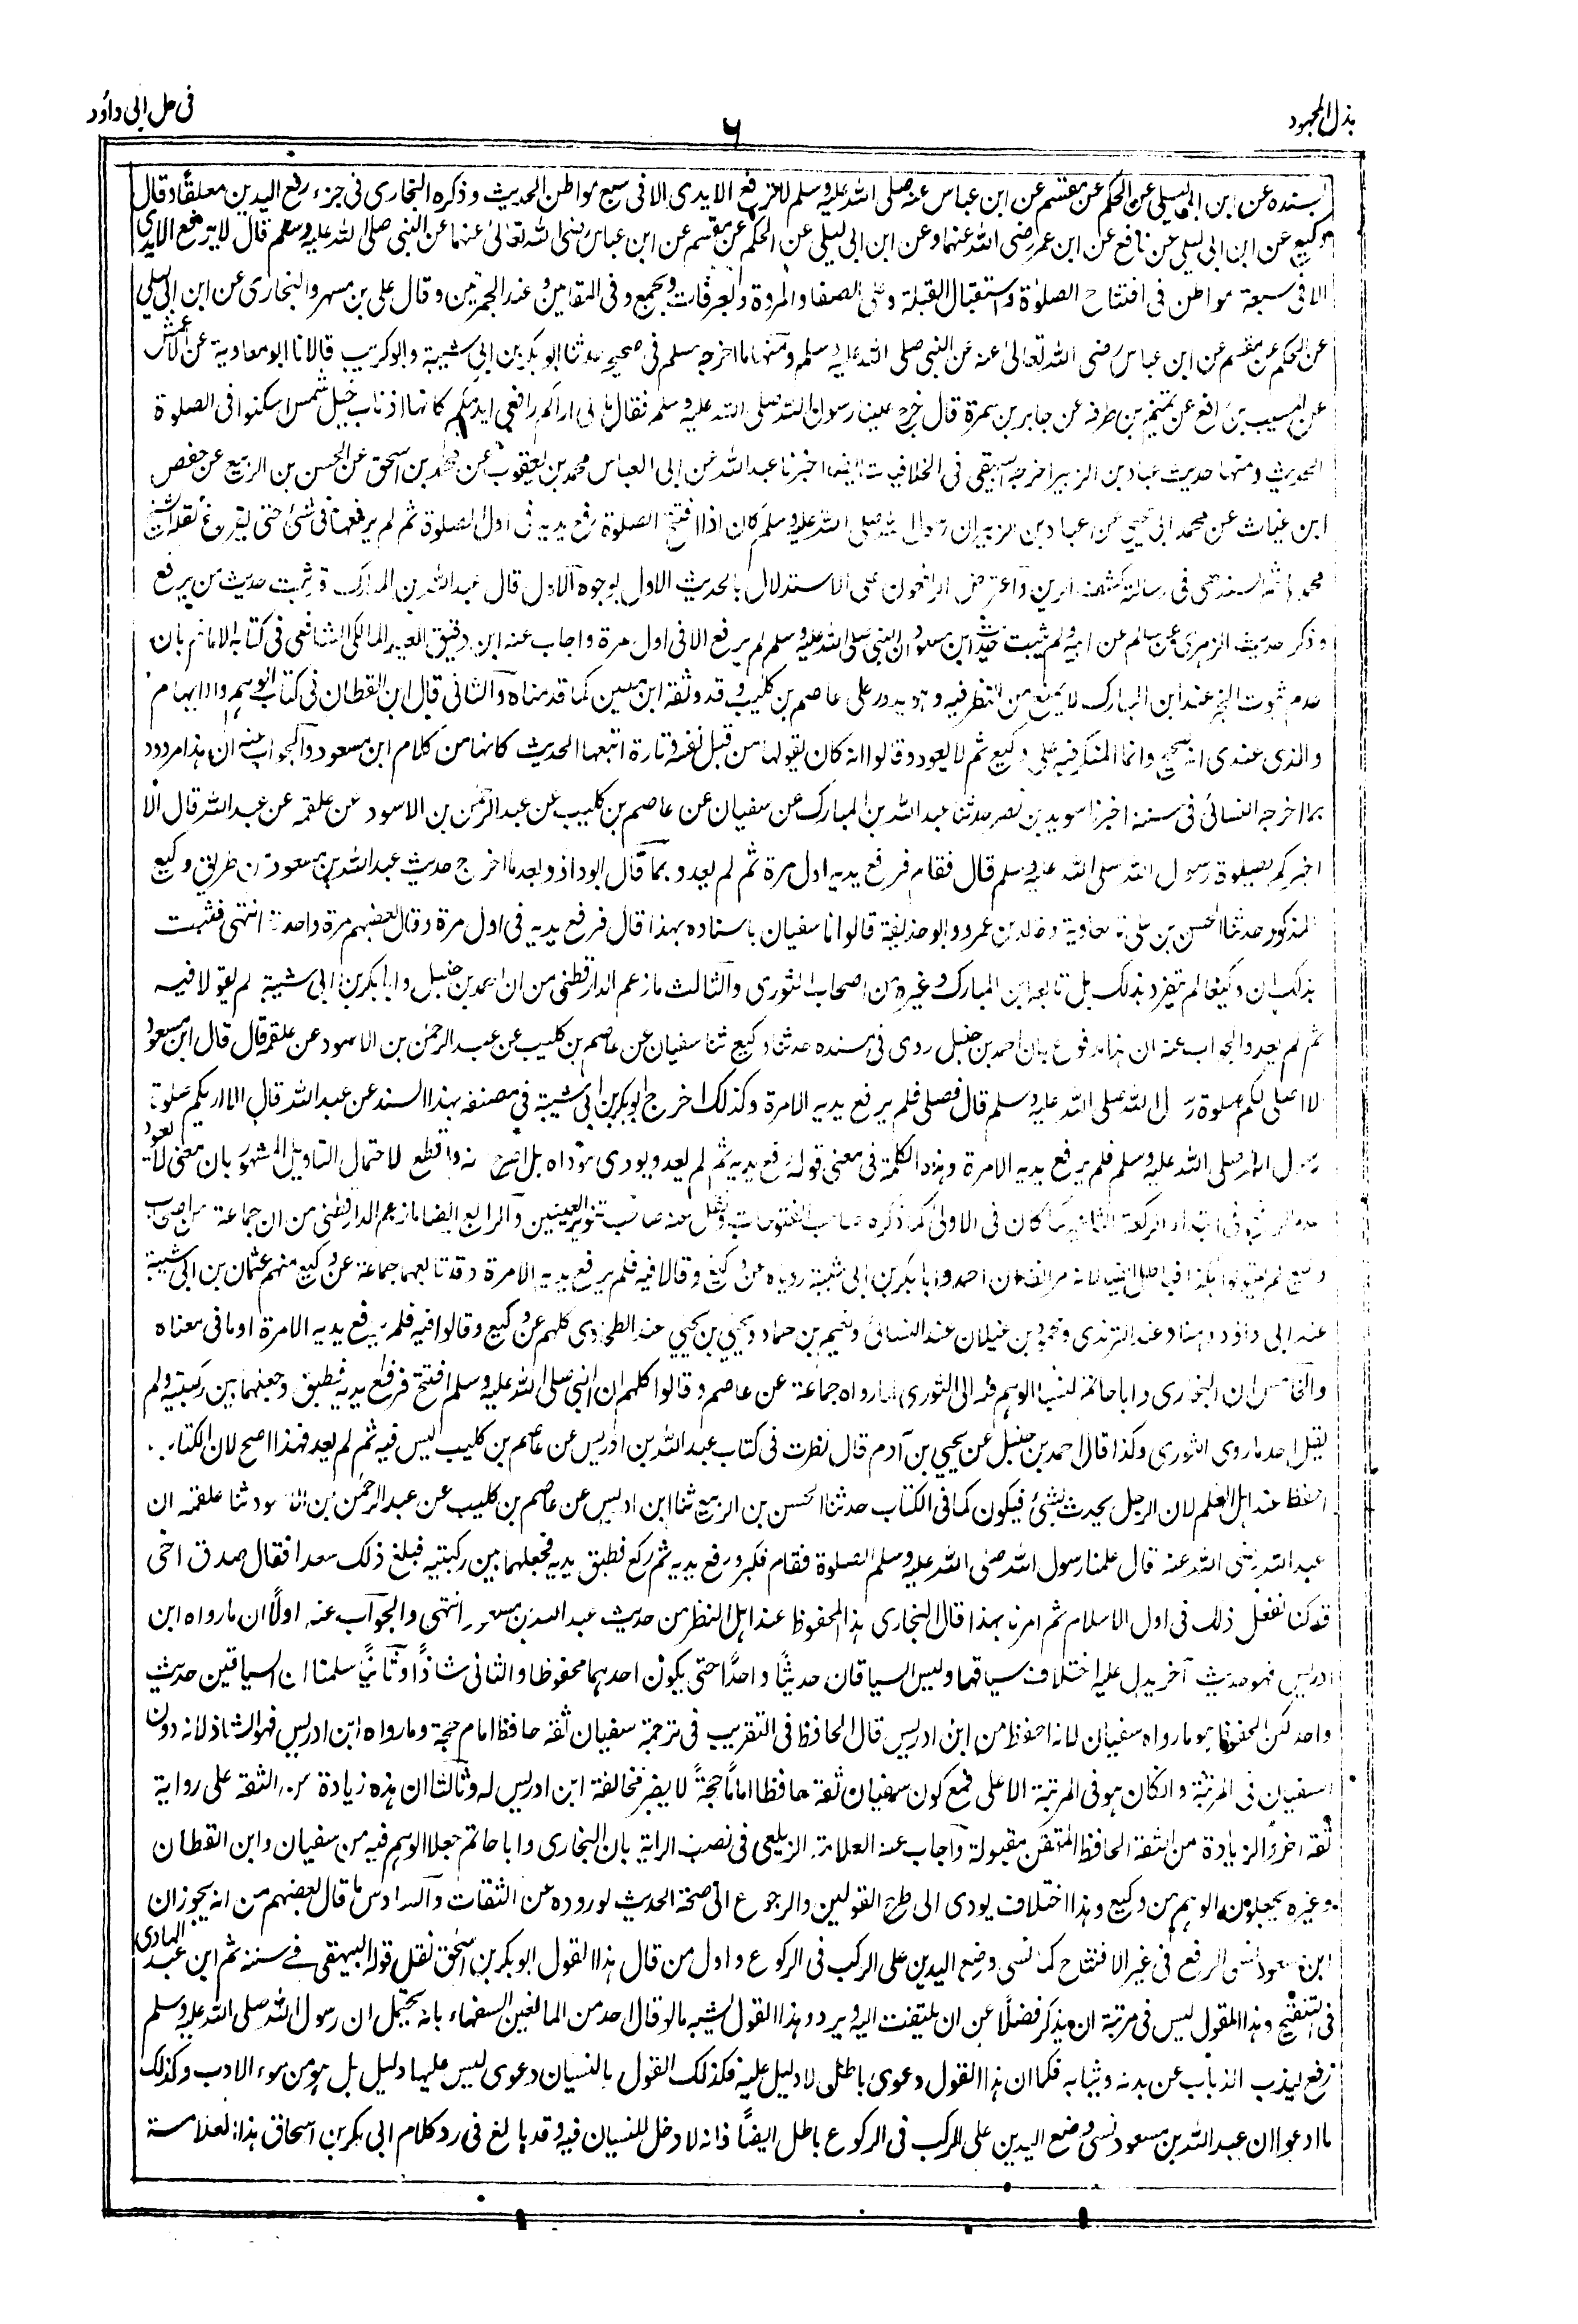 بذل المجهود
٦
فی حل ابی داؤد
بسنده عن ابن ابی لیلی عن الحکم عن مقسم عن ابن عباس عنه صلی الله علیه وسلم لا ترفع الایدی الا فی سبع مواطن الحدیث وذکره البخاری فی جزء رفع الیدین معلقًا وقال
وکیع عن ابن ابی لیلی عن نافع عن ابن عمر رضی الله عنهما وعن ابن ابی لیلی عن الحکم عن مقسم عن ابن عباس رضی الله تعالیٰ عنهما عن النبی صلی الله علیه وسلم قال لا یرفع الایدی
الا فی سبعة مواطن فی افتتاح الصلوٰة واستقبال القبلة وعلی الصفا والمروة والعرفات وبجمع وفی المقامین وعند الجمرتین وقال علی بن مسهر والبخاری عن ابن ابی لیلی
عن الحکم عن مقسم عن ابن عباس رضی الله تعالیٰ عنه عن النبی صلی الله علیه وسلم ومنها ما اخرجه مسلم فی صحیحه حدثنا ابو بکر بن ابی شیبة وابو کریب قالا نا ابو معاویة عن الاعمش
عن المسیب بن رافع عن تمیم بن طرفه عن جابر بن سمرة قال خرج علینا رسول الله صلی الله علیه وسلم فقال مالی اراکم رافعی ایدیکم کانها اذناب خیل شمس اسکنوا فی الصلوة
الحدیث ومنها حدیث عباد بن الزبیر اخرجه البیهقی فی الخلافیات ایضا اخبرنا عبدالله عن ابی العباس محمد بن یعقوب عن محمد بن اسحق عن الحسن بن الربیع عن حفص
ابن غیاث عن محمد ابی یحیی عن عباد بن الزبیر ان رسول الله صلی الله علیه وسلم کان اذا افتتح الصلوة رفع یدیه فی اول الصلوة ثم لم یرفعها فی شئ حتی یفرغ نقله الشیخ
محمد هاشم السندهی فی رسالته کشف الرین واعترض الرافعون علی الاستدلال بالحدیث الاول بوجوه الاول قال عبدالله بن المبارک قد ثبت حدیث من یرفع
وذکر حدیث الزهری عن سالم عن ابیه ولم یثبت حدیث ابن مسعود ان النبی صلی الله علیه وسلم لم یرفع الا فی اول مرة واجاب عنه ابن دقیق العید المالکی الشافعی فی کتابه الامام بان
عدم ثبوت الخبر عند ابن المبارک لا یمنع من النظر فیه وهو یدور علی عاصم بن کلیب وقد وثقه ابن معین کما قدمناه والثانی قال ابن القطان فی کتاب الوهم والایهام
والذی عندی انه صحیح وانما المنکر فیه علی وکیع ثم لا یعود وقالوا انه کان یقولها من قبل نفسه وتارة اتبعها الحدیث کانها من کلام ابن مسعود والجواب عنه ان هذا مردود
بما اخرجه النسائی فی سننه اخبرنا سوید بن نصر حدثنا عبدالله بن المبارک عن سفیان عن عاصم بن کلیب عن عبدالرحمٰن بن الاسود عن علقمه عن عبدالله قال الا
اخبرکم بصلوة رسول الله صلی الله علیه وسلم قال فقام فرفع یدیه اول مرة ثم لم یعد وبما قال ابو داؤد بعد ما اخرج حدیث عبدالله بن مسعود من طریق وکیع
المذکور حدثنا الحسن بن علی نا معاویة وخالد بن عمرو وابو حذیفة قالوا نا سفیان باسناده بهذا قال فرفع یدیه فی اول مرة وقال بعضهم مرة واحدة انتهی فثبت
بذلک ان وکیعا لم یتفرد بذلک بل تابعه ابن المبارک وغیره من اصحاب الثوری والثالث ما زعم الدارقطنی من ان احمد بن حنبل وابا بکر بن ابی شیبة لم یقولا فیه
ثم لم یعد والجواب عنه ان هذا مدفوع بان احمد بن حنبل روی فی مسنده حدثنا وکیع ثنا سفیان عن عاصم بن کلیب عن عبدالرحمٰن بن الاسود عن علقمه قال قال ابن مسعود
لا اصلی لکم صلوة رسول الله صلی الله علیه وسلم قال فصلی فلم یرفع یدیه الا مرة وکذلک اخرج ابو بکر بن ابی شیبة فی مصنفه بهذا السند عن عبدالله قال الا اریکم صلوة
رسول الله صلی الله علیه وسلم فلم یرفع یدیه الا مرة وهذه الکلمة فی معنی قوله رفع یدیه ثم لم یعد ویودی موداه بل اصرح منه واقطع لاحتمال التاویل المشهور بان معنی لا یعود
عدم الرفع فی ابتداء الرکعة الثانیة کما کان فی الاولیٰ کما ذکره صاحب الفتوحات ونقل عنه صاحب تنویر العینین والرابع ایضا ما زعم الدارقطنی من ان جماعة من اصحاب
وکیع لم یقولوا هکذا فباطل ایضا لانه مر انفا ان احمد وابا بکر بن ابی شیبة رویاه عن وکیع وقالا فیه فلم یرفع یدیه الا مرة وقد تابعهما جماعة عن وکیع منهم عثمان بن ابی شیبة
عند ابی داؤد وهناد عند الترمذی ومحمود بن غیلان عند النسائی ونعیم بن حماد ویحیی بن یحیی عند الطحاوی کلهم عن وکیع وقالوا فیه فلم یرفع یدیه الا مرة او ما فی معناه
والخامس ان البخاری وابا حاتم نسبا الوهم فیه الی الثوری لما رواه جماعة عن عاصم وقالوا کلهم ان النبی صلی الله علیه وسلم افتتح فرفع یدیه فطبق وجعلهما بین رکبتیه ولم
یقل احد ما روی الثوری وکذا قال احمد بن حنبل عن یحیی بن آدم قال نظرت فی کتاب عبدالله بن ادریس عن عاصم بن کلیب لیس فیه ثم لم یعد فهذا اصح لان الکتاب
احفظ عند اهل العلم لان الرجل یحدث بشئ فیکون کما فی الکتاب حدثنا الحسن بن الربیع ثنا ابن ادریس عن عاصم بن کلیب عن عبدالرحمٰن بن الاسود ثنا علقمه ان
عبدالله رضی الله عنه قال علمنا رسول الله صلی الله علیه وسلم الصلوة فقام فکبر ورفع یدیه ثم رکع فطبق یدیه فجعلهما بین رکبتیه فبلغ ذلک سعدا فقال صدق اخی
قد کنا نفعل ذلک فی اول الاسلام ثم امرنا بهذا قال البخاری هذا المحفوظ عند اهل النظر من حدیث عبدالله بن مسعود انتهی والجواب عنه اولًا ان ما رواه ابن
ادریس فهو حدیث آخر یدل علیه اختلاف سیاقهما ولیس السیاقان حدیثًا واحدًا حتی یکون احدهما محفوظا والثانی شاذًا وثانیًا سلمنا ان السیاقین حدیث
واحد لکن المحفوظ هو ما رواه سفیان لانه احفظ من ابن ادریس قال الحافظ فی التقریب فی ترجمة سفیان ثقة حافظ امام حجة وما رواه ابن ادریس فهو الشاذ لانه دون
سفیان فی المرتبة وان کان هو فی المرتبة الاعلی فمع کون سفیان ثقة حافظا امامًا حجةً لا یضر مخالفة ابن ادریس له وثالثا ان هذه زیادة من الثقة علی روایة
ثقة اخر والزیادة من الثقة الحافظ المتقن مقبولة واجاب عنه العلامة الزیلعی فی نصب الرایة بان البخاری وابا حاتم جعلا الوهم فیه من سفیان وابن القطان
وغیره یجعلون الوهم من وکیع وهذا اختلاف یودی الی طرح القولین والرجوع الی صحة الحدیث لوروده عن الثقات والسادس ما قال بعضهم من انه یجوز ان
ابن مسعود نسی الرفع فی غیر الافتتاح کما نسی وضع الیدین علی الرکب فی الرکوع واول من قال هذا القول ابو بکر بن اسحٰق نقل قوله البیهقی فے سننه ثم ابن عبد الهادی
فی التنقیح وهذا المقول لیس فی مرتبة ان یذکر فضلًا عن ان یلتفت الیه ویرد وهذا القول یشبه ما لو قال احد من المالغین السفهاء بانه یحتمل ان رسول الله صلی الله علیه وسلم
رفع لیذب الذباب عن بدنه وثیابه فکما ان هذا القول دعوی باطلی لا دلیل علیه فکذلک القول بالنسیان دعوی لیس علیها دلیل بل هو من سوء الادب وکذلک
ما ادعوا ان عبدالله بن مسعود نسی وضع الیدین علی الرکب فی الرکوع باطل ایضًا فانه لا دخل للنسیان فیه وقد بالغ فی رد کلام ابی بکر بن اسحاق هذا العلامة